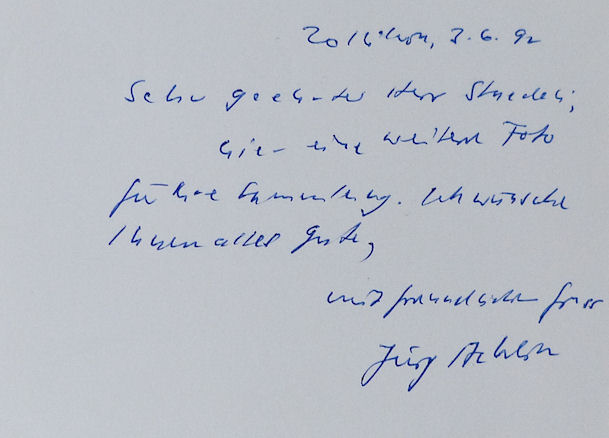 Zollikon, 3.6.92
Sehr geehrter Herr
hier eine weitere Foto
für Ihre Sammlung. Ich wünsche
Ihnen alles Gute,
mit freundlichem Gruss
Jürg